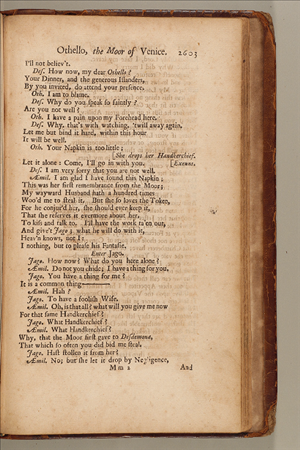 Othello, the Moor of Venice. 2603
I'll not believ't.
Des. How now, my dear Othello?
Your Dinner, and the generous Islanders,
By you invited, do attend your presence.
Oth. I am to blame.
Des. Why do you speak so faintly?
Are you not well?
Oth. I have a pain upon my Forehead here.
Des. Why, that's with watching, 'twill away again.
Let me but bind it hard, within this hour
It will be well.
Oth. Your Napkin is too little;
[She drops her Handkerchief.
Let it alone: Come, I'll go in with you. [Exeunt.
Des. I am very sorry that you are not well.
Æmil. I am glad I have found this Napkin;
This was her first remembrance from the Moor;
My wayward Husband hath a hundred times
Woo'd me to steal it. But she so loves the Token,
For he conjur'd her, she should ever keep it,
That she reserves it evermore about her,
To kiss and talk to. I'll have the work ta'en out,
And give't Jago; what he will do with it,
Heav'n knows, not I:
I nothing, but to please his Fantasie.
Enter Jago.
Jago. How now? What do you here alone?
Æmil. Do not you chide; I have a thing for you.
Jago. You have a thing for me?
It is a common thing———
Æmil. Hah?
Jago. To have a foolish Wife.
Æmil. Oh, is that all? what will you give me now
For that same Handkerchief?
Jago. What Handkerchief?
Æmil. What Handkerchief?
Why, that the Moor first gave to Desdemona,
That which so often you did bid me steal.
Jago. Hast stollen it from her?
Æmil. No; but she let it drop by Negligence,
M m 2 And